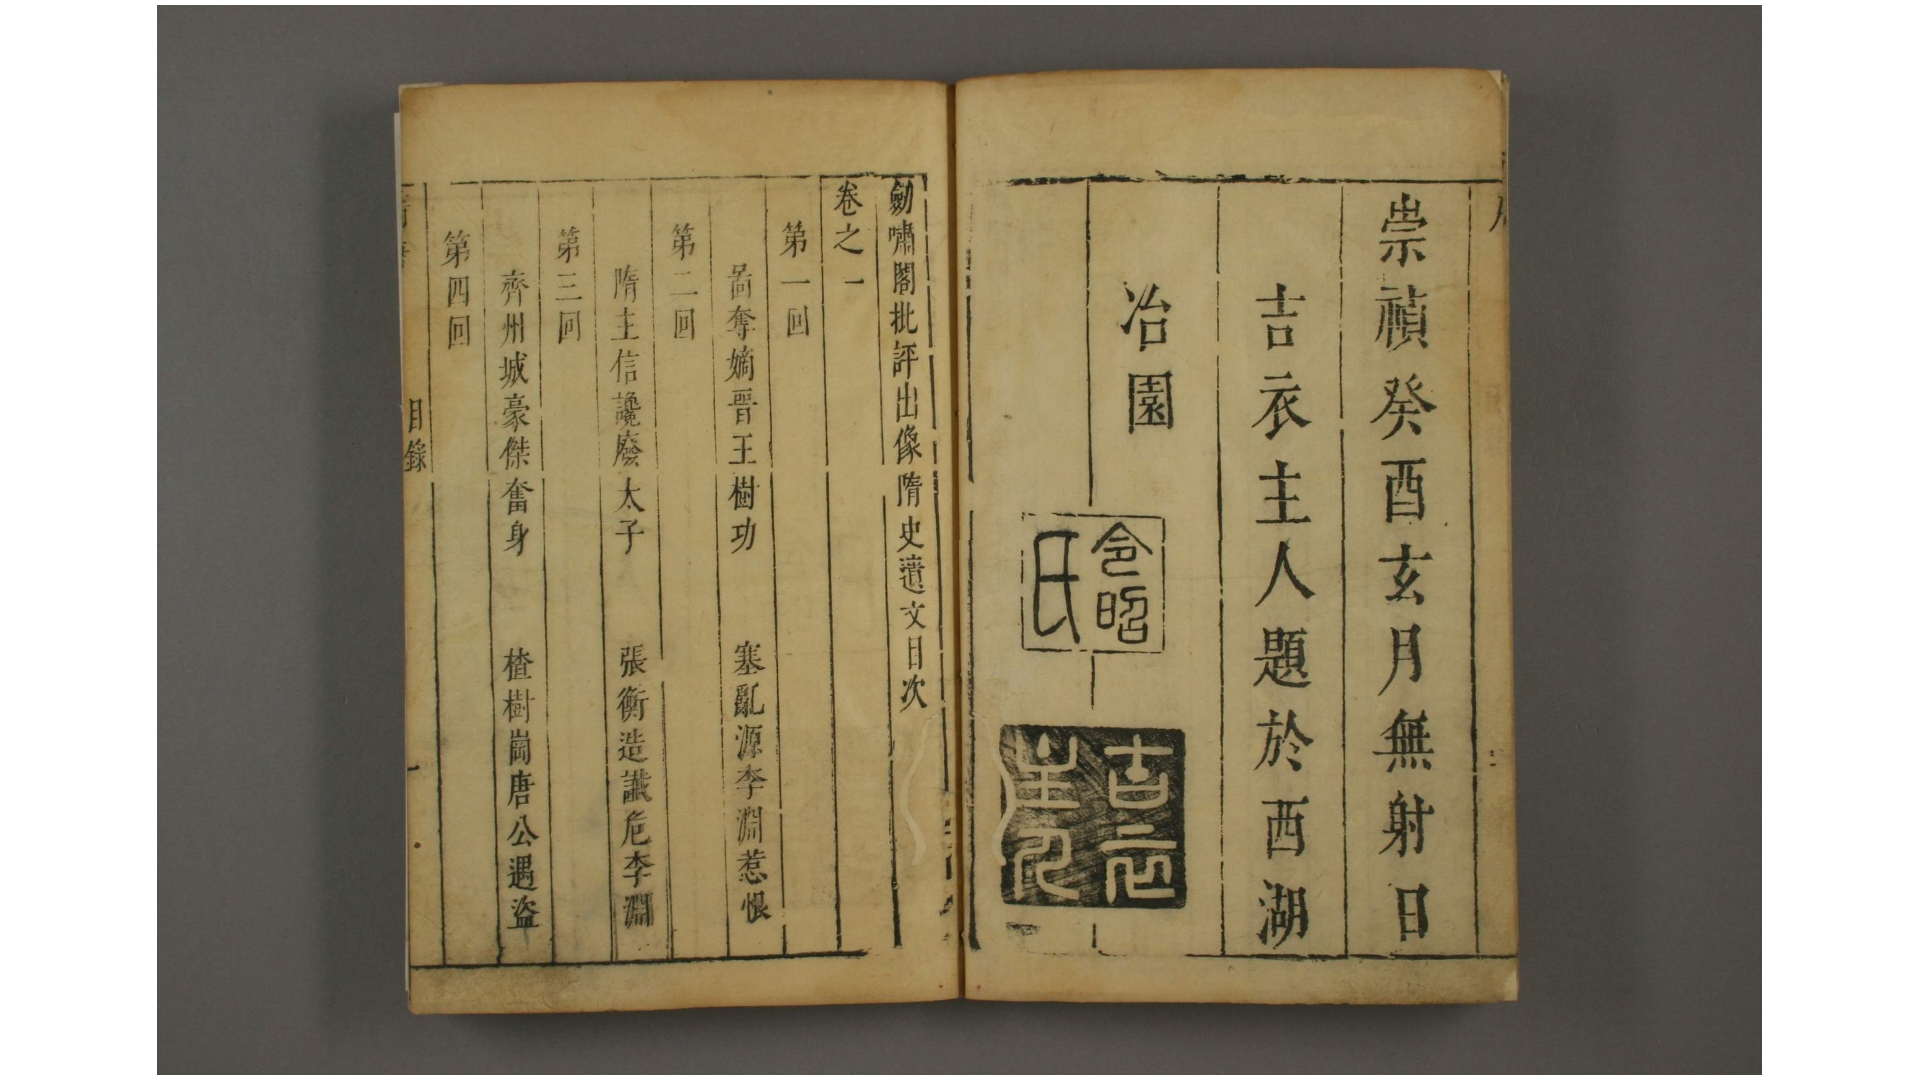 崇禎癸酉玄月無射日
吉衣主人題於西湖
冶園
令昭
氏
吉衣
主人
劒嘯閣批評出像隋史遺文目次
卷之一
第一回
啚奪嫡晋王樹功 塞亂源李淵惹恨
第二回
隋主信讒廢太子 張衡造讖危李淵
第三回
齊州城豪傑奮身 楂樹崗唐公遇盜
第四回
目錄
一